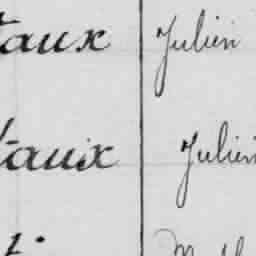 taux Julien
taux Julien